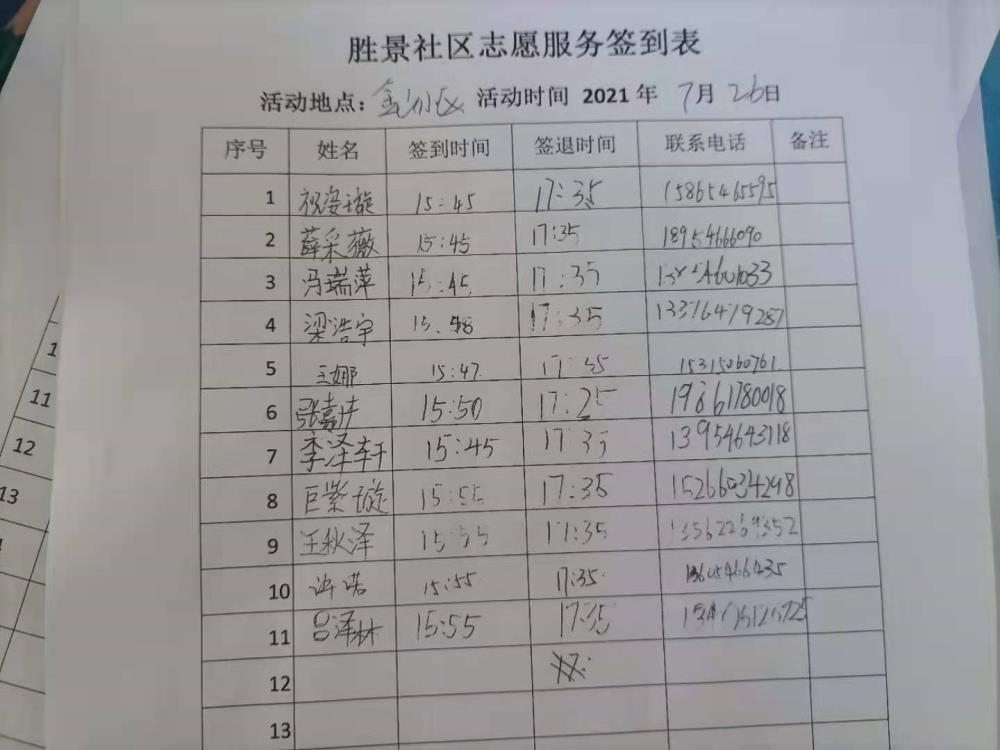 胜景社区志愿服务签到表
活动地点： 活动时间 2021 年 7月 26日
序号 姓名 签到时间 签退时间 联系电话 备注
1 祝姿璇 15:45 17:35 15865465595
2 薛采薇 15:45 17:35 18954666090
3 冯瑞萍 15:45 17:35
4 梁浩宇 17:35
5 王娜 15:47 15315060761
6 15:50 17:25 19861780018
7 李泽轩 15:45 17:35 13954643118
8 巨紫璇 15:55 17:35 15266034298
9 王秋泽 15:55 17:35
10 许诺 15:55 17:35
11 吕泽林 15:55 17:35
12
13
1
11
12
13